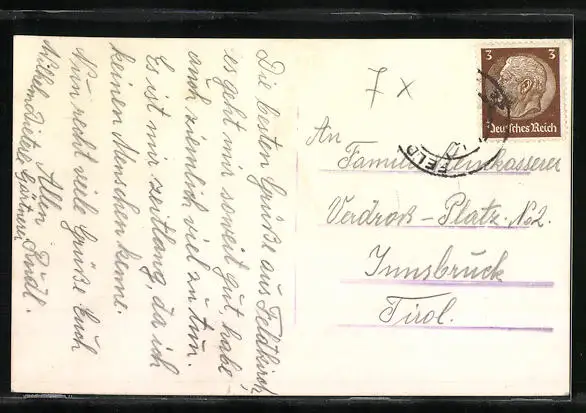 Die besten Grüße aus Feldkirch,
es geht mir soweit gut, habe
auch ziemlich viel zu tun.
Es ist mir zeitlang, da ich
keinen Menschen kenne.
Nun recht viele Grüße Euch
Allen Rudl.
Gärtnerei
7 x
3 3
Deutsches Reich
FELD
An
Familie
Verdroß-Platz. No 2.
Innsbruck
Tirol.